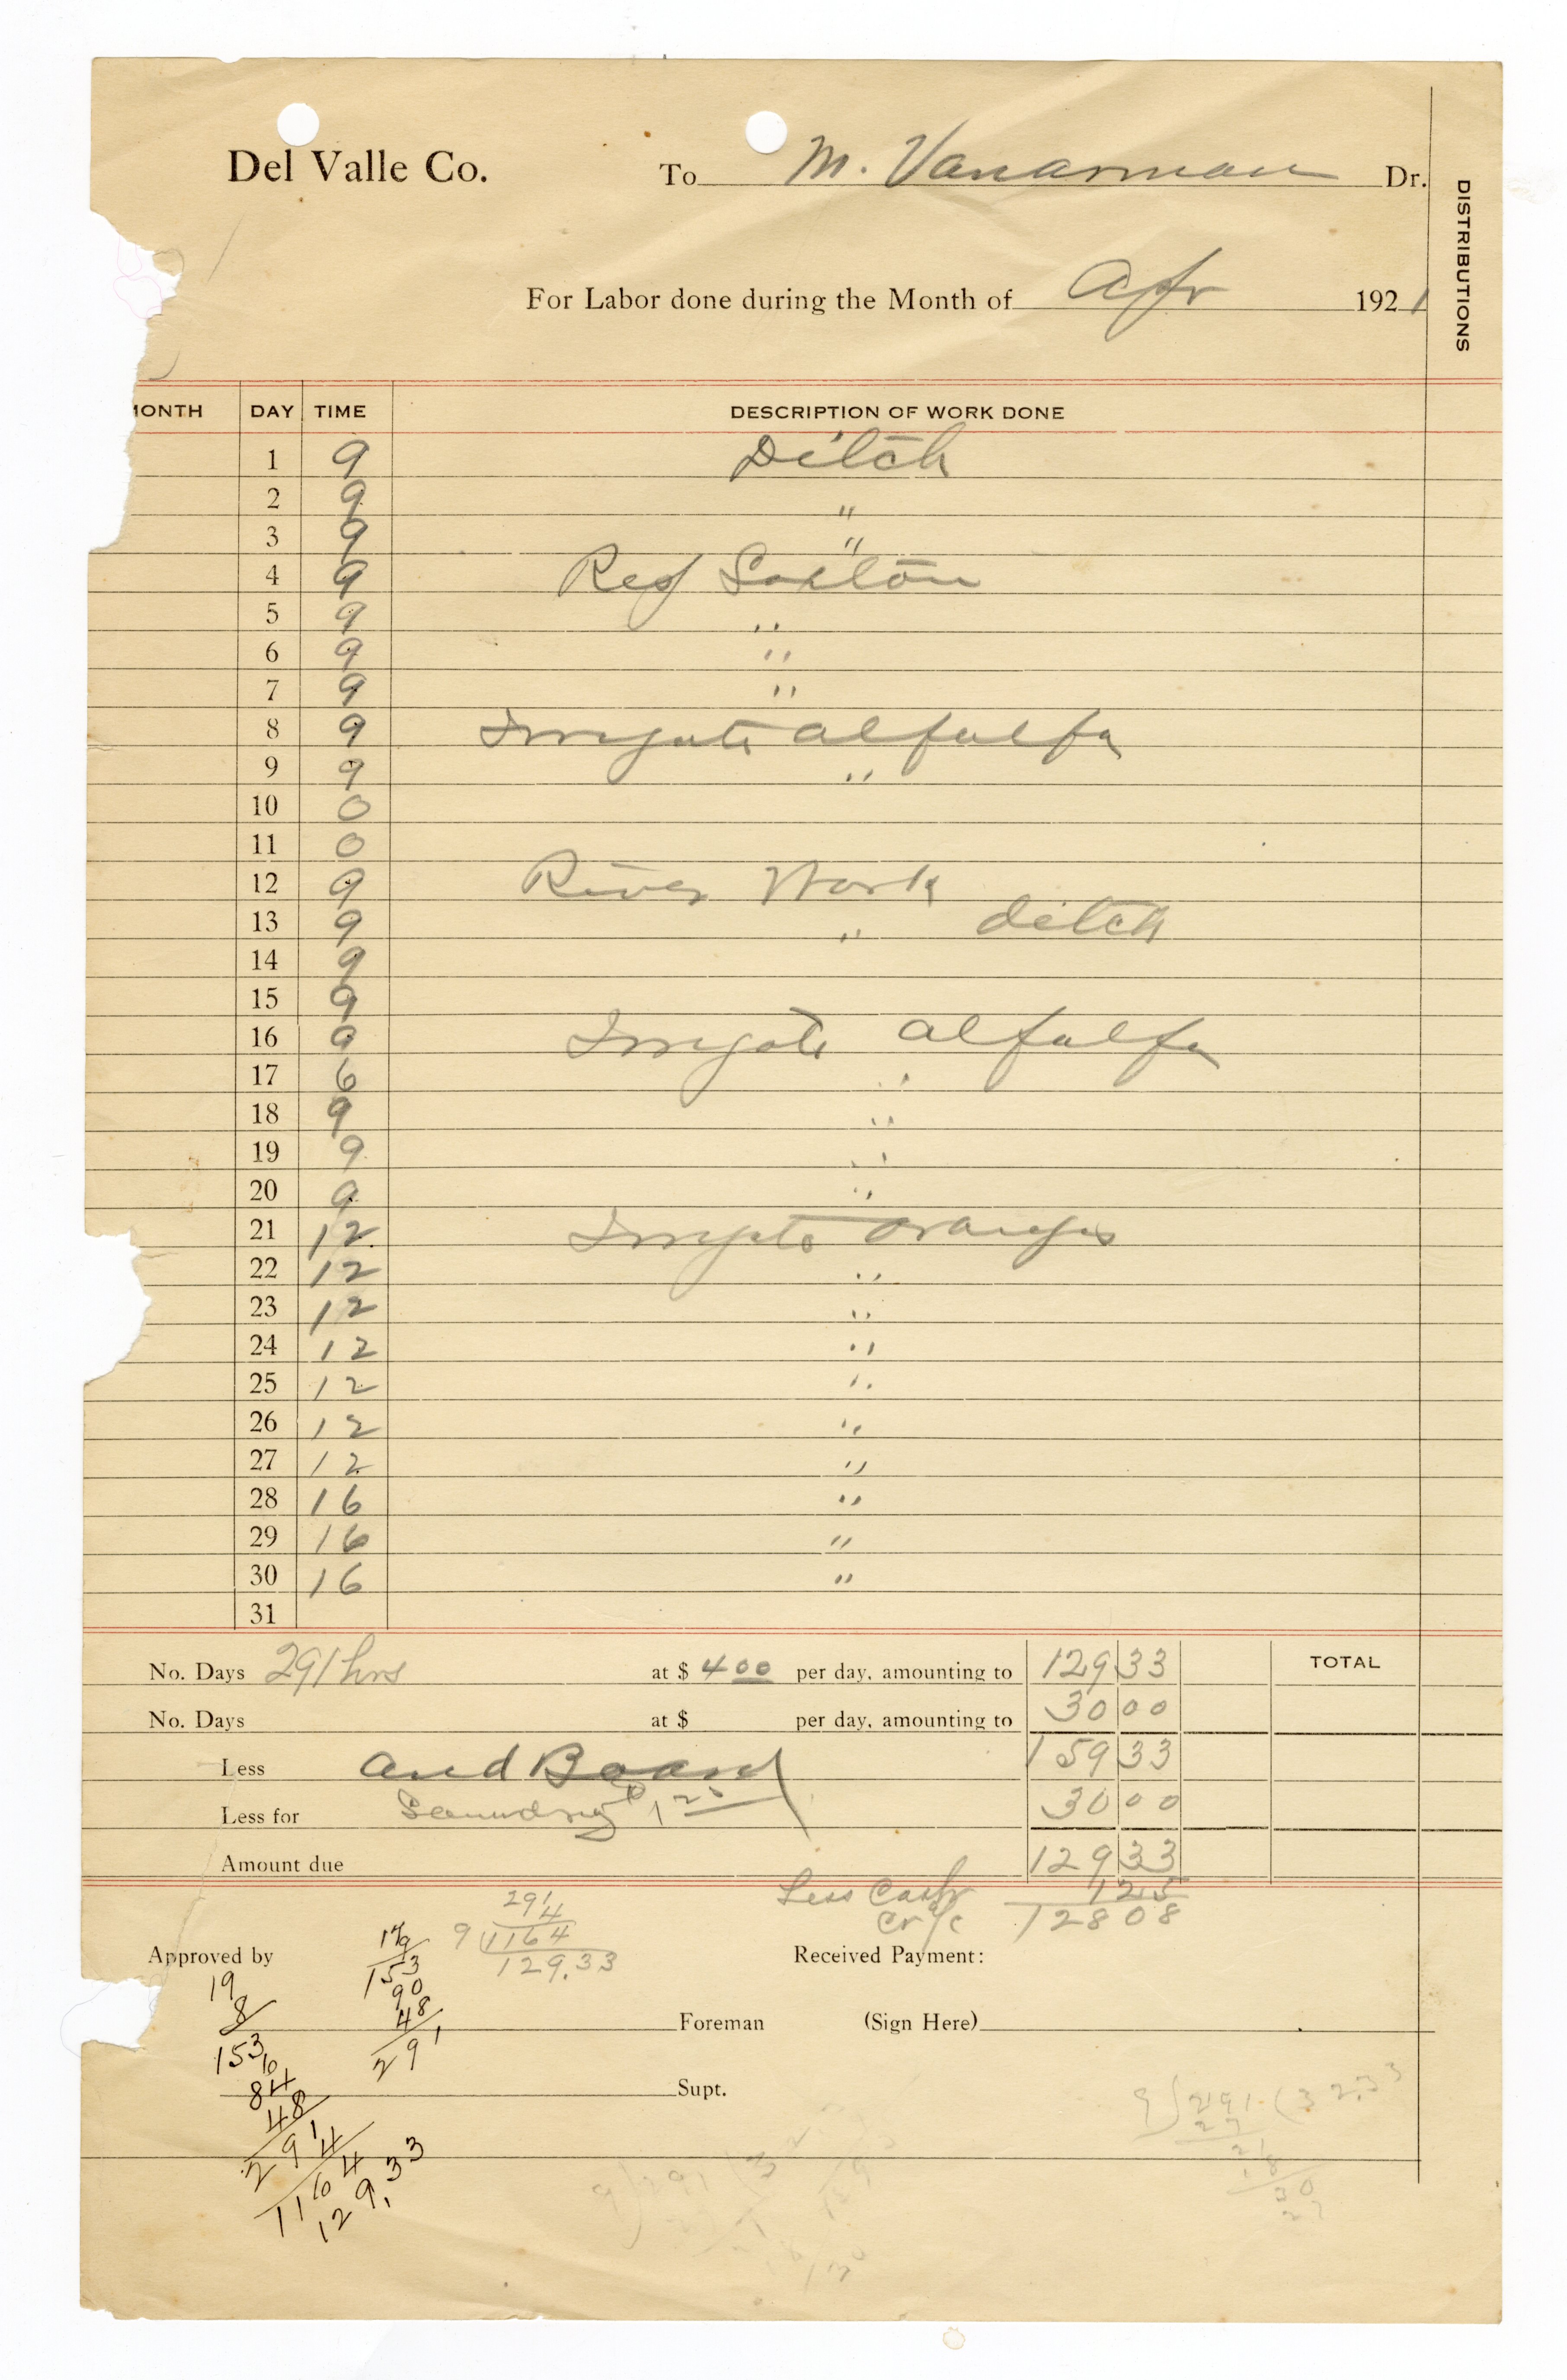 Del Valle Co. To M. Vanarman Dr.
DISTRIBUTIONS
For Labor done during the Month of Apr 1921
MONTH DAY TIME DESCRIPTION OF WORK DONE
1 9 Ditch
2 9 "
3 9 "
4 9
5 9 "
6 9 "
7 9 "
8 9 Irrigate alfalfa
9 9 "
10 0
11 0
12 9 River Work
13 9 " ditch
14 9
15 9
16 9 Irrigate alfalfa
17 6 "
18 9 "
19 9 "
20 9 "
21 12 Irrigate oranges
22 12 "
23 12 "
24 12 "
25 12 "
26 12 "
27 12 "
28 16 "
29 16 "
30 16 "
31
No. Days 291 hrs at $ 4 00 per day, amounting to 129 33 TOTAL
No. Days at $ per day, amounting to 30 00
Less and Board 159 33
Less for Laundry 30 00
Amount due 129 33
Less Cash 1 25
Cr a/c 128 08
291
4
9 1164
129.33
Approved by Received Payment:
153
90
48
291
Foreman (Sign Here)
19
8
153
84
48
291
4
1164
129.33
Supt.
9 ) 291 ( 32.33
27
21
18
30
27